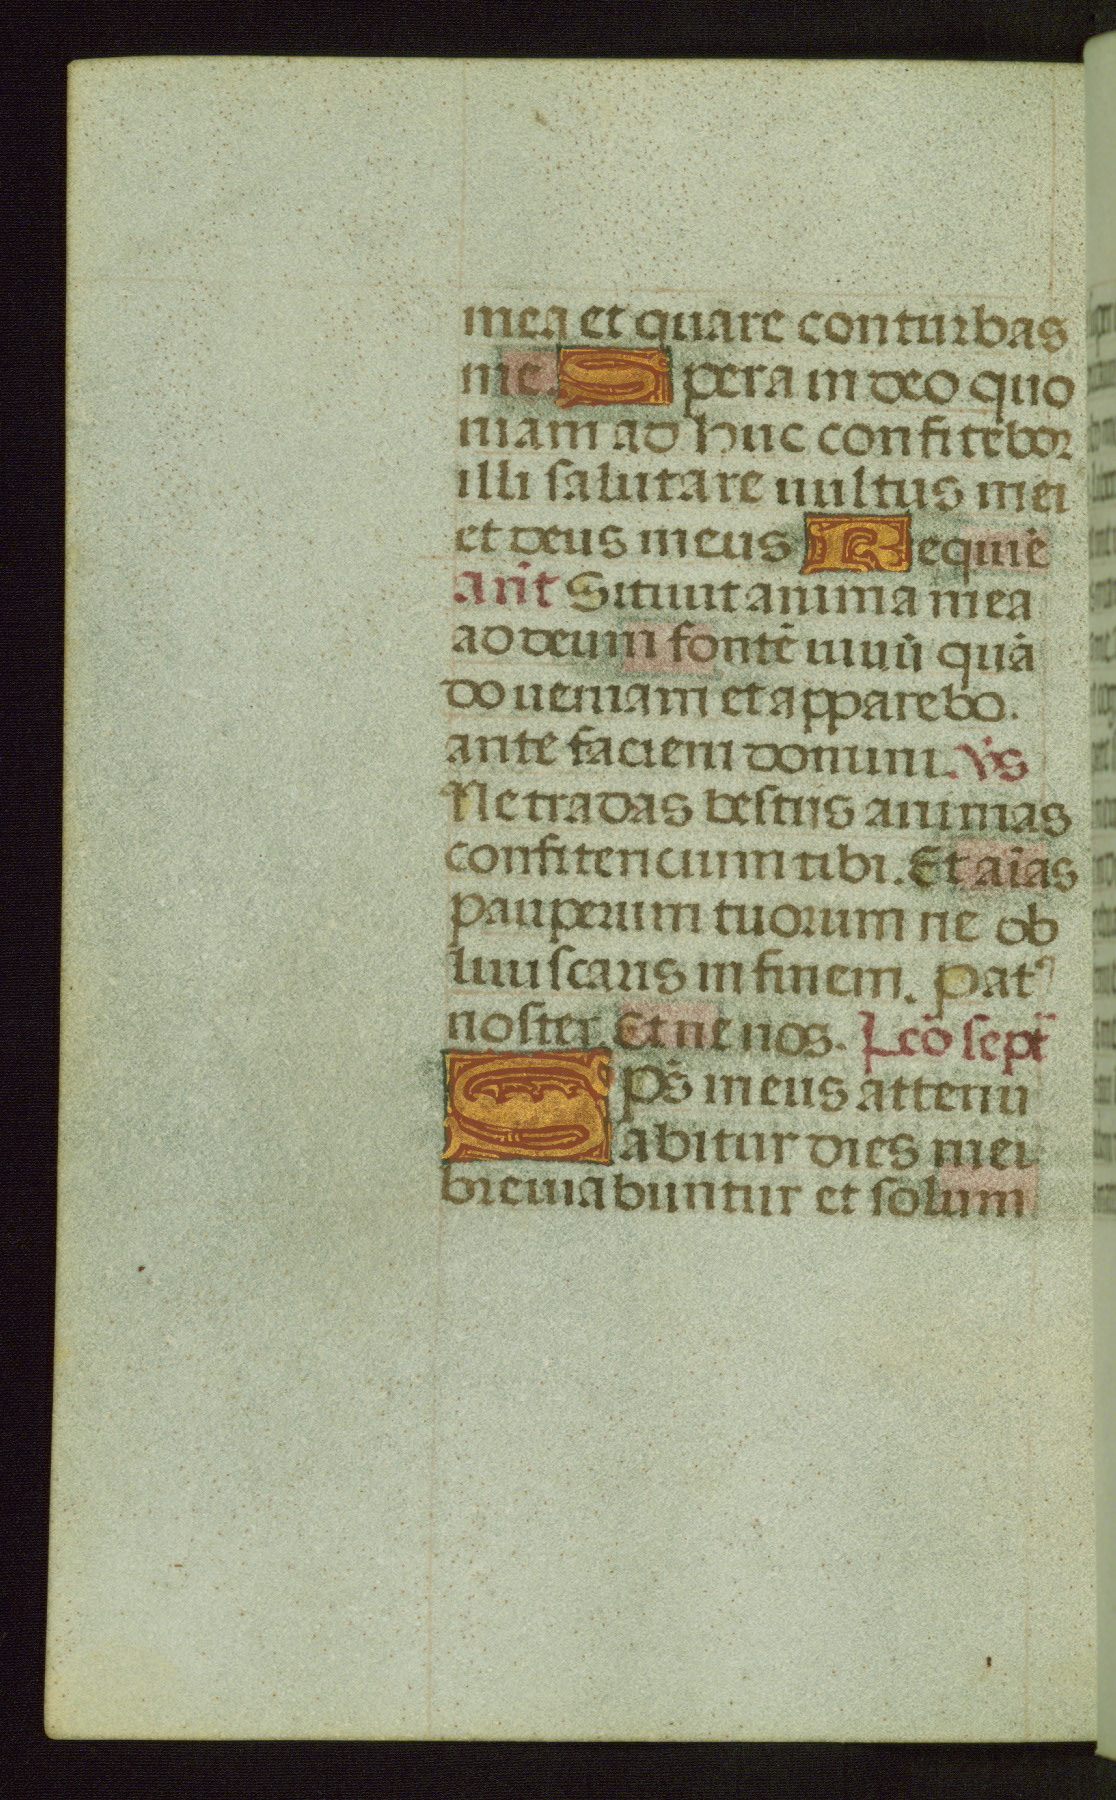 mea et quare conturbas
me. Spera in deo quo
niam ad huc confitebor
illi salutare uultus mei
et deus meus Requiē
anñ Sitiuit anima mea
ad deum fontē uiuū quā
do ueniam et apparebo.
ante faciem domini. Vs̄
Ne tradas bestiis animas
confitencium tibi. Et aīas
pauperum tuorum ne ob
liuiscaris in finem. Pat᷒
noster. Et ne nos. Lcō sept̄
Sps̄ meus attenu
abitur dies mei
breuiabuntur et solum